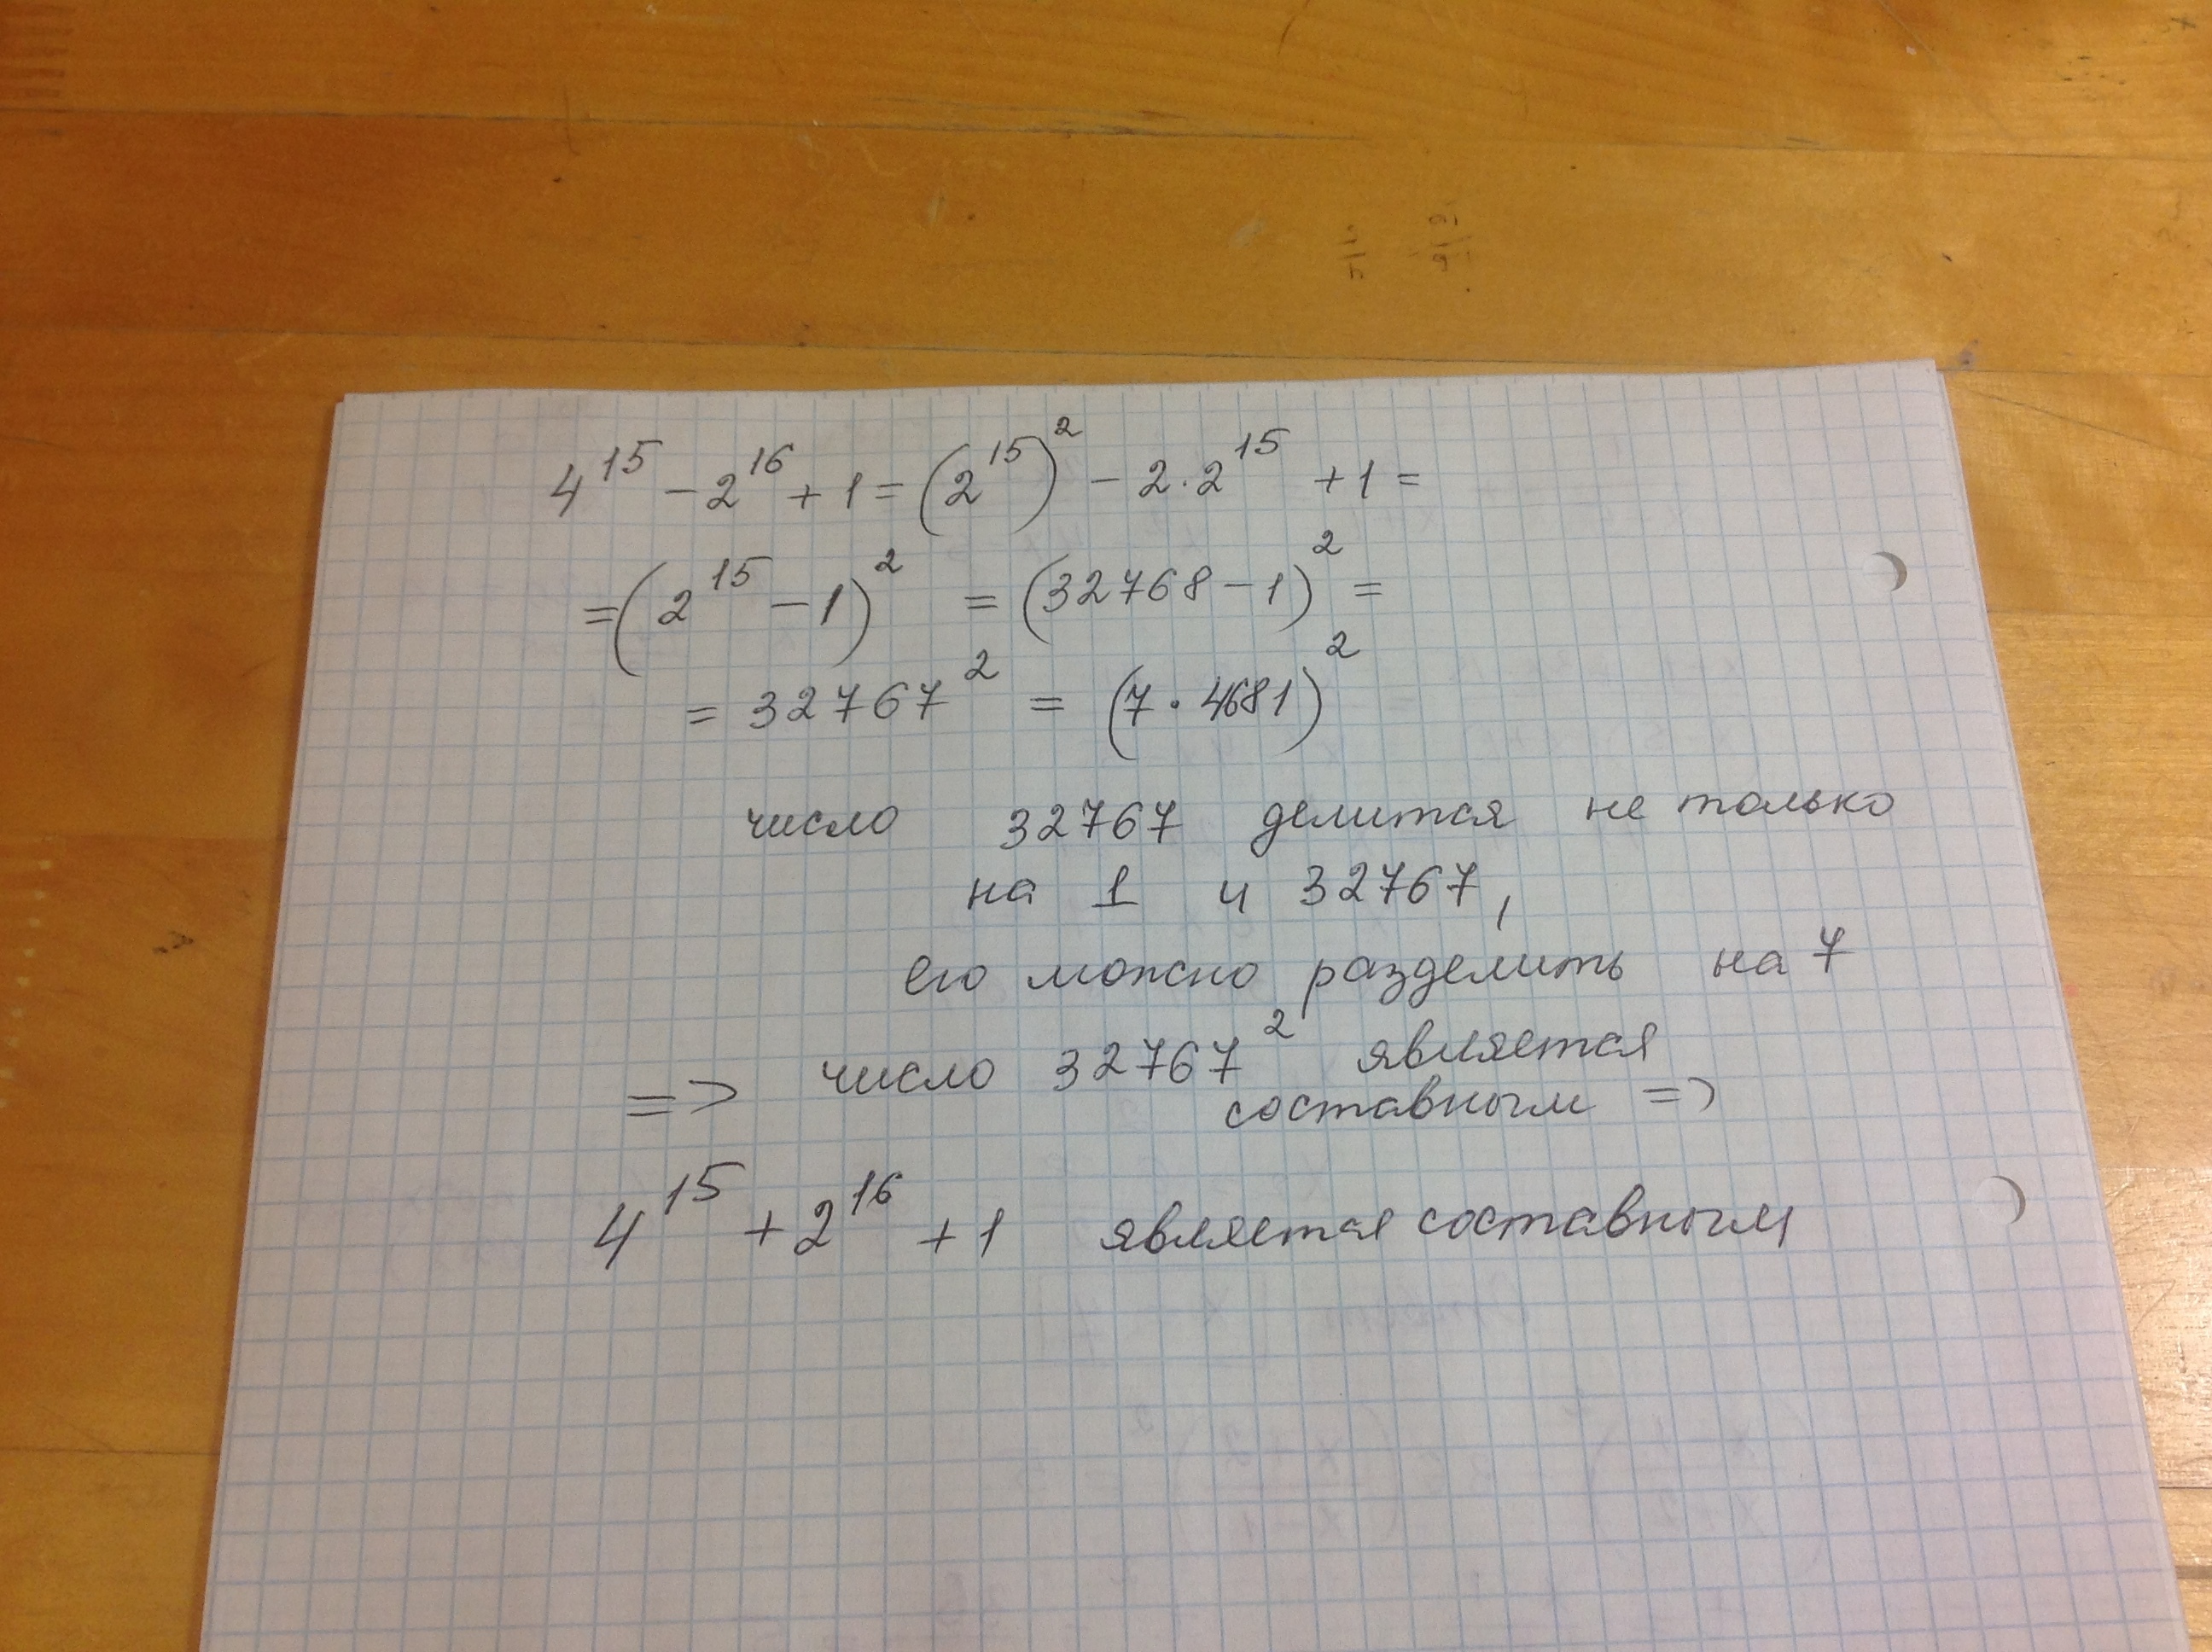 4^15 - 2^16 + 1 = (2^15)^2 - 2·2^15 + 1 =
= (2^15 - 1)^2 = (32768 - 1)^2 =
= 32767^2 = (7·4681)^2
число 32767 делится не только
на 1 и 32767,
его можно разделить на 7
=> число 32767^2 является
составным =>
4^15 + 2^16 + 1 является составным